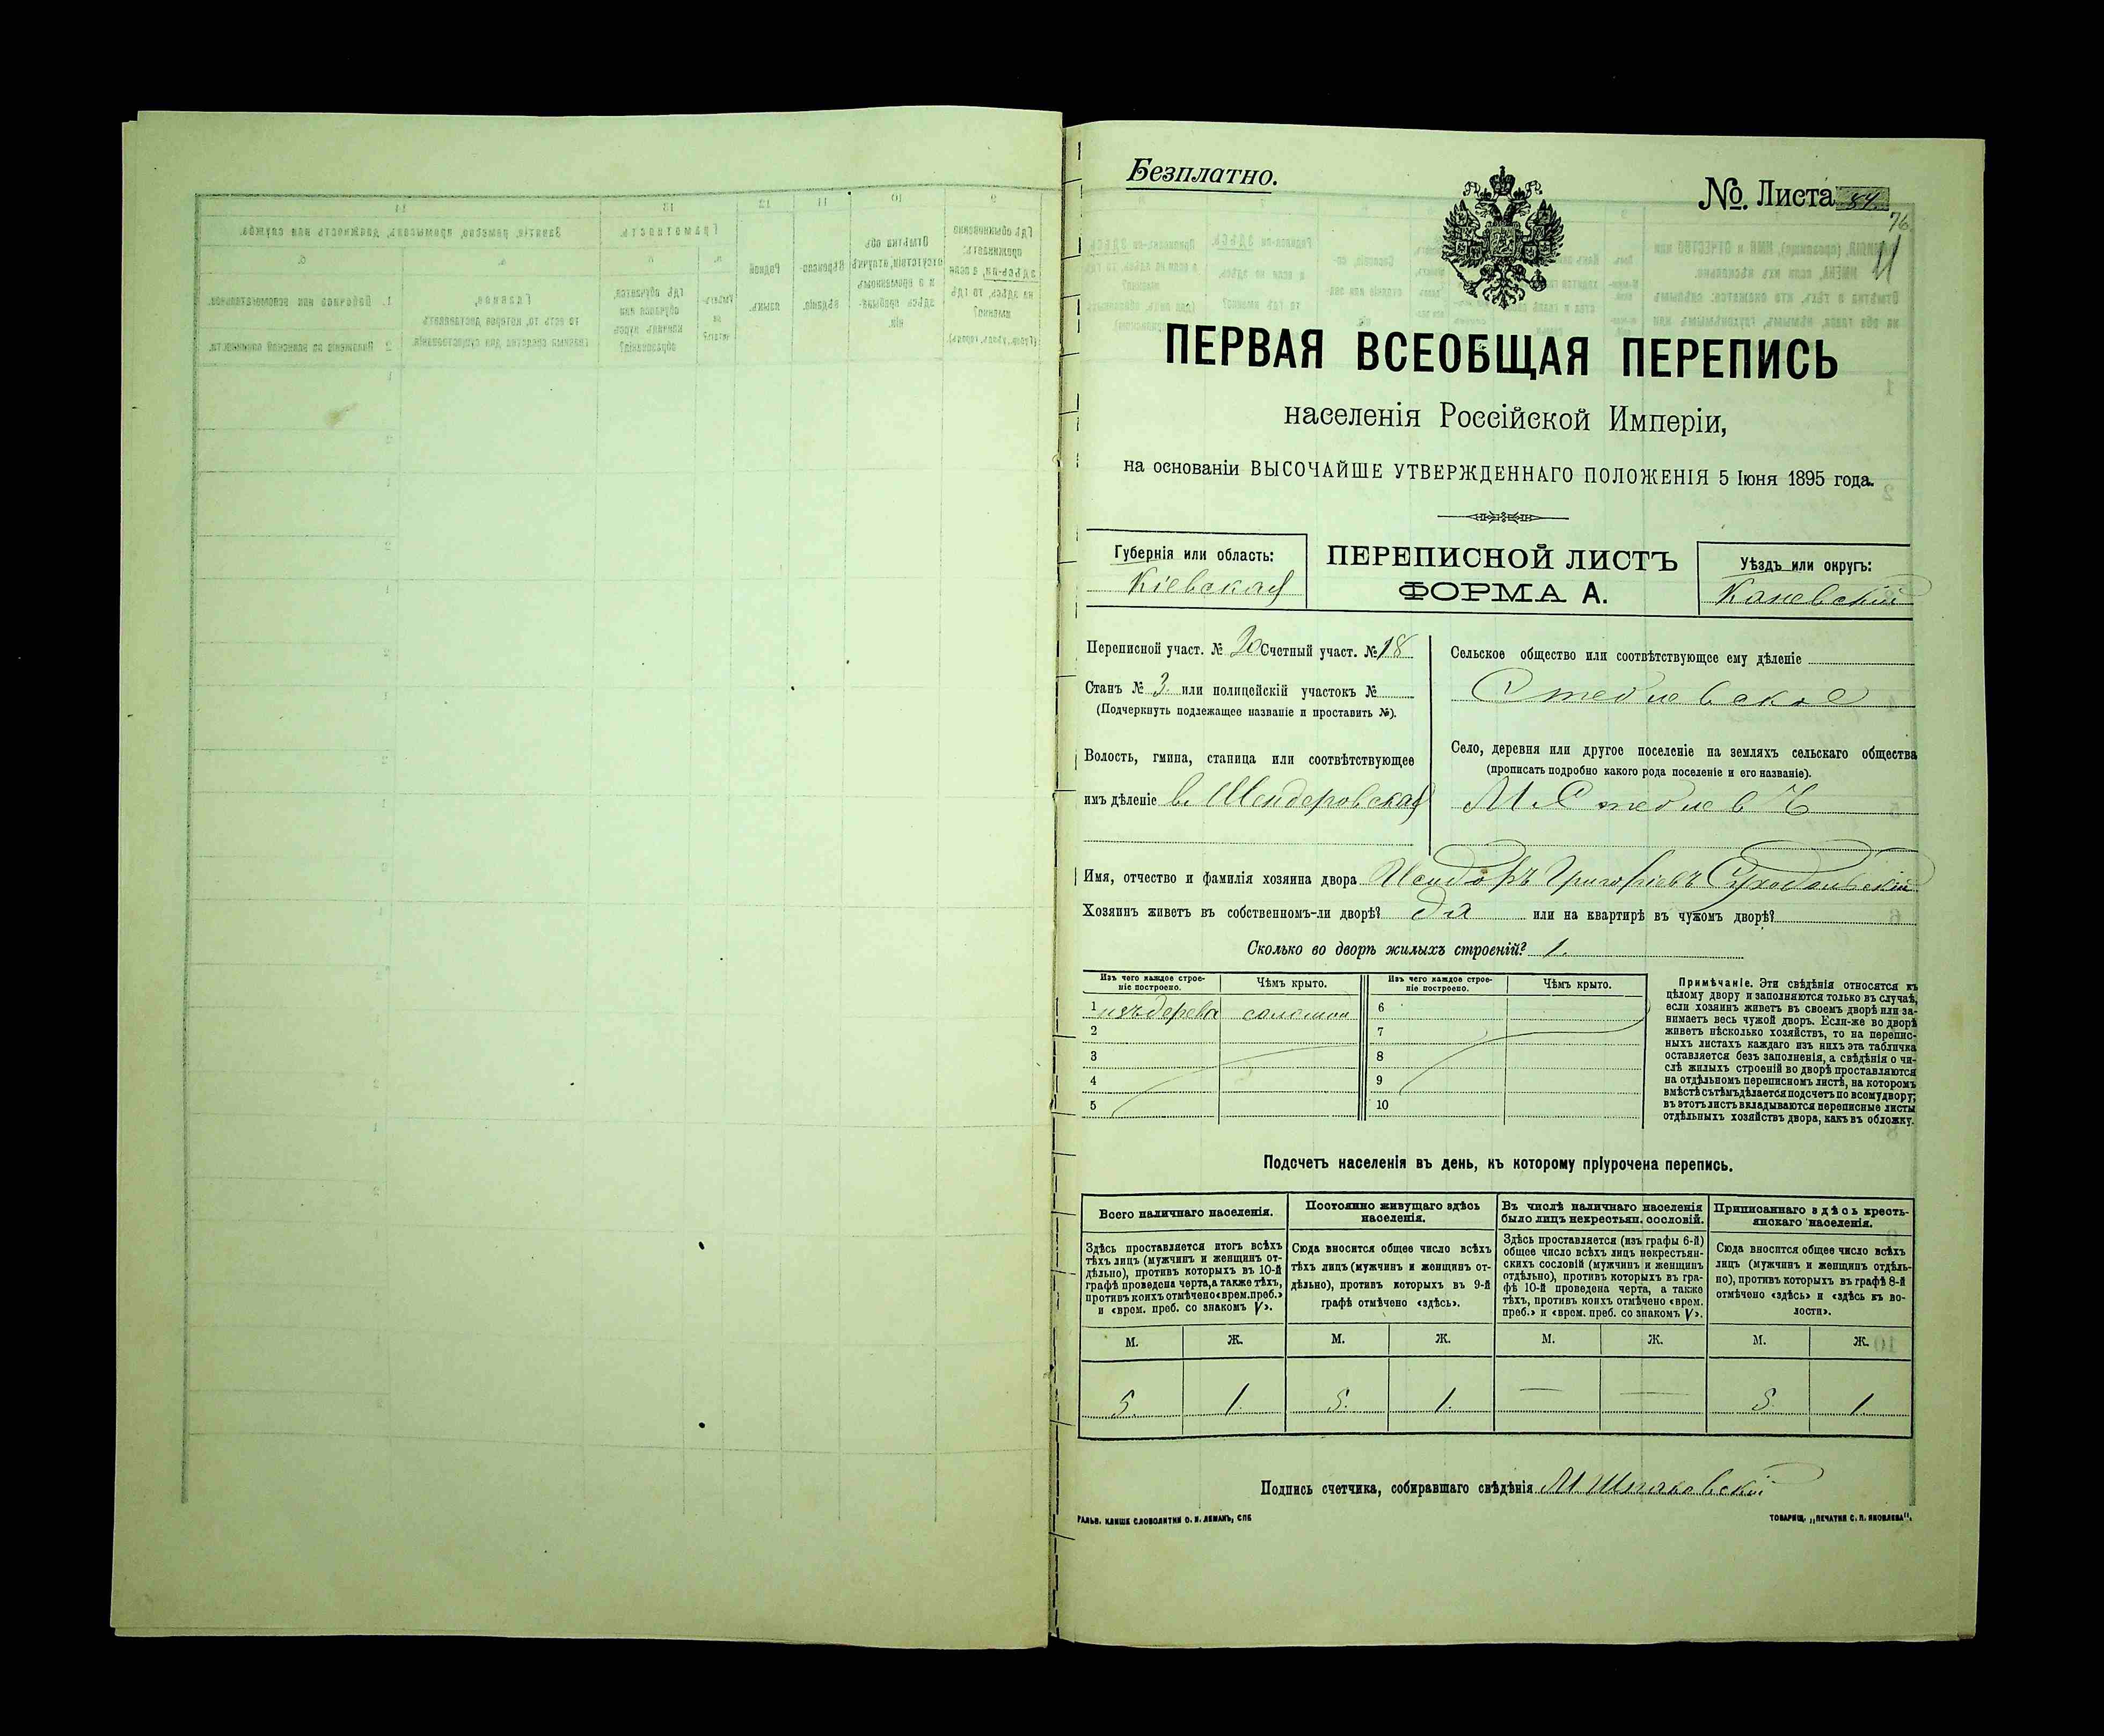 Безплатно.
№ Листа 84.
76
ПЕРВАЯ ВСЕОБЩАЯ ПЕРЕПИСЬ
населенія Россійской Имперіи,
на основаніи ВЫСОЧАЙШЕ УТВЕРЖДЕННАГО ПОЛОЖЕНІЯ 5 Іюня 1895 года.
Губернія или область:
Кіевская
ПЕРЕПИСНОЙ ЛИСТЪ
ФОРМА А.
Уѣздъ или округъ:
Каневскій
Переписной участ. № 20 Счетный участ. № 18
Станъ № 3. или полицейскій участокъ №
(Подчеркнуть подлежащее названіе и проставить №).
Волость, гмина, станица или соотвѣтствующее
имъ дѣленіе в. Шендеровская
Сельское общество или соотвѣтствующее ему дѣленіе
Стеблевское
Село, деревня или другое поселеніе на земляхъ сельскаго общества
(прописать подробно какого рода поселеніе и его названіе).
М. Стеблевъ
Имя, отчество и фамилія хозяина двора Исидоръ Григоріевъ Суходольскій
Хозяинъ живетъ въ собственномъ-ли дворѣ? Да или на квартирѣ въ чужомъ дворѣ?
Сколько во дворѣ жилыхъ строеній? 1.
Изъ чего каждое строе-
ніе построено.
Чѣмъ крыто.
Изъ чего каждое строе-
ніе построено.
Чѣмъ крыто.
1 изъ дерева соломой 6
2 7
3 8
4 9
5 10
Примѣчаніе. Эти свѣдѣнія относятся къ
цѣлому двору и заполняются только въ случаѣ,
если хозяинъ живетъ въ своемъ дворѣ или за-
нимаетъ весь чужой дворъ. Если-же во дворѣ
живетъ нѣсколько хозяйствъ, то на перепис-
ныхъ листахъ каждаго изъ нихъ эта табличка
оставляется безъ заполненія, а свѣдѣнія о чи-
слѣ жилыхъ строеній во дворѣ проставляются
на отдѣльномъ переписномъ листѣ, на которомъ
вмѣстѣ съ тѣмъ дѣлается подсчетъ по всему двору;
въ этотъ листъ вкладываются переписные листы
отдѣльныхъ хозяйствъ двора, какъ въ обложку.
Подсчетъ населенія въ день, къ которому пріурочена перепись.
Всего наличнаго населенія.
Здѣсь проставляется итогъ всѣхъ
тѣхъ лицъ (мужчинъ и женщинъ от-
дѣльно), противъ которыхъ въ 10-й
графѣ проведена черта, а также тѣхъ,
противъ коихъ отмѣчено «врем. преб.»
и «врем. преб. со знакомъ V».
Постоянно живущаго здѣсь
населенія.
Сюда вносится общее число всѣхъ
тѣхъ лицъ (мужчинъ и женщинъ от-
дѣльно), противъ которыхъ въ 9-й
графѣ отмѣчено «здѣсь».
Въ числѣ наличнаго населенія
было лицъ некрестьян. сословій.
Здѣсь проставляется (изъ графы 6-й)
общее число всѣхъ лицъ некрестьян-
скихъ сословій (мужчинъ и женщинъ
отдѣльно), противъ которыхъ въ гра-
фѣ 10-й проведена черта, а также
тѣхъ, противъ коихъ отмѣчено «врем.
преб.» и «врем. преб. со знакомъ V».
Приписаннаго здѣсь кресть-
янскаго населенія.
Сюда вносится общее число всѣхъ
лицъ (мужчинъ и женщинъ отдѣль-
но), противъ которыхъ въ графѣ 8-й
отмѣчено «здѣсь» и «здѣсь къ во-
лости».
М. Ж. М. Ж. М. Ж. М. Ж.
5. 1. 5. 1. — — 5. 1
Подпись счетчика, собиравшаго свѣдѣнія М. Шпаковскій
ГАЛЬВ. КЛИШЕ СЛОВОЛИТНИ О. И. ЛЕМАНЪ, СПБ
ТОВАРИЩ. „ПЕЧАТНЯ С. П. ЯКОВЛЕВА".